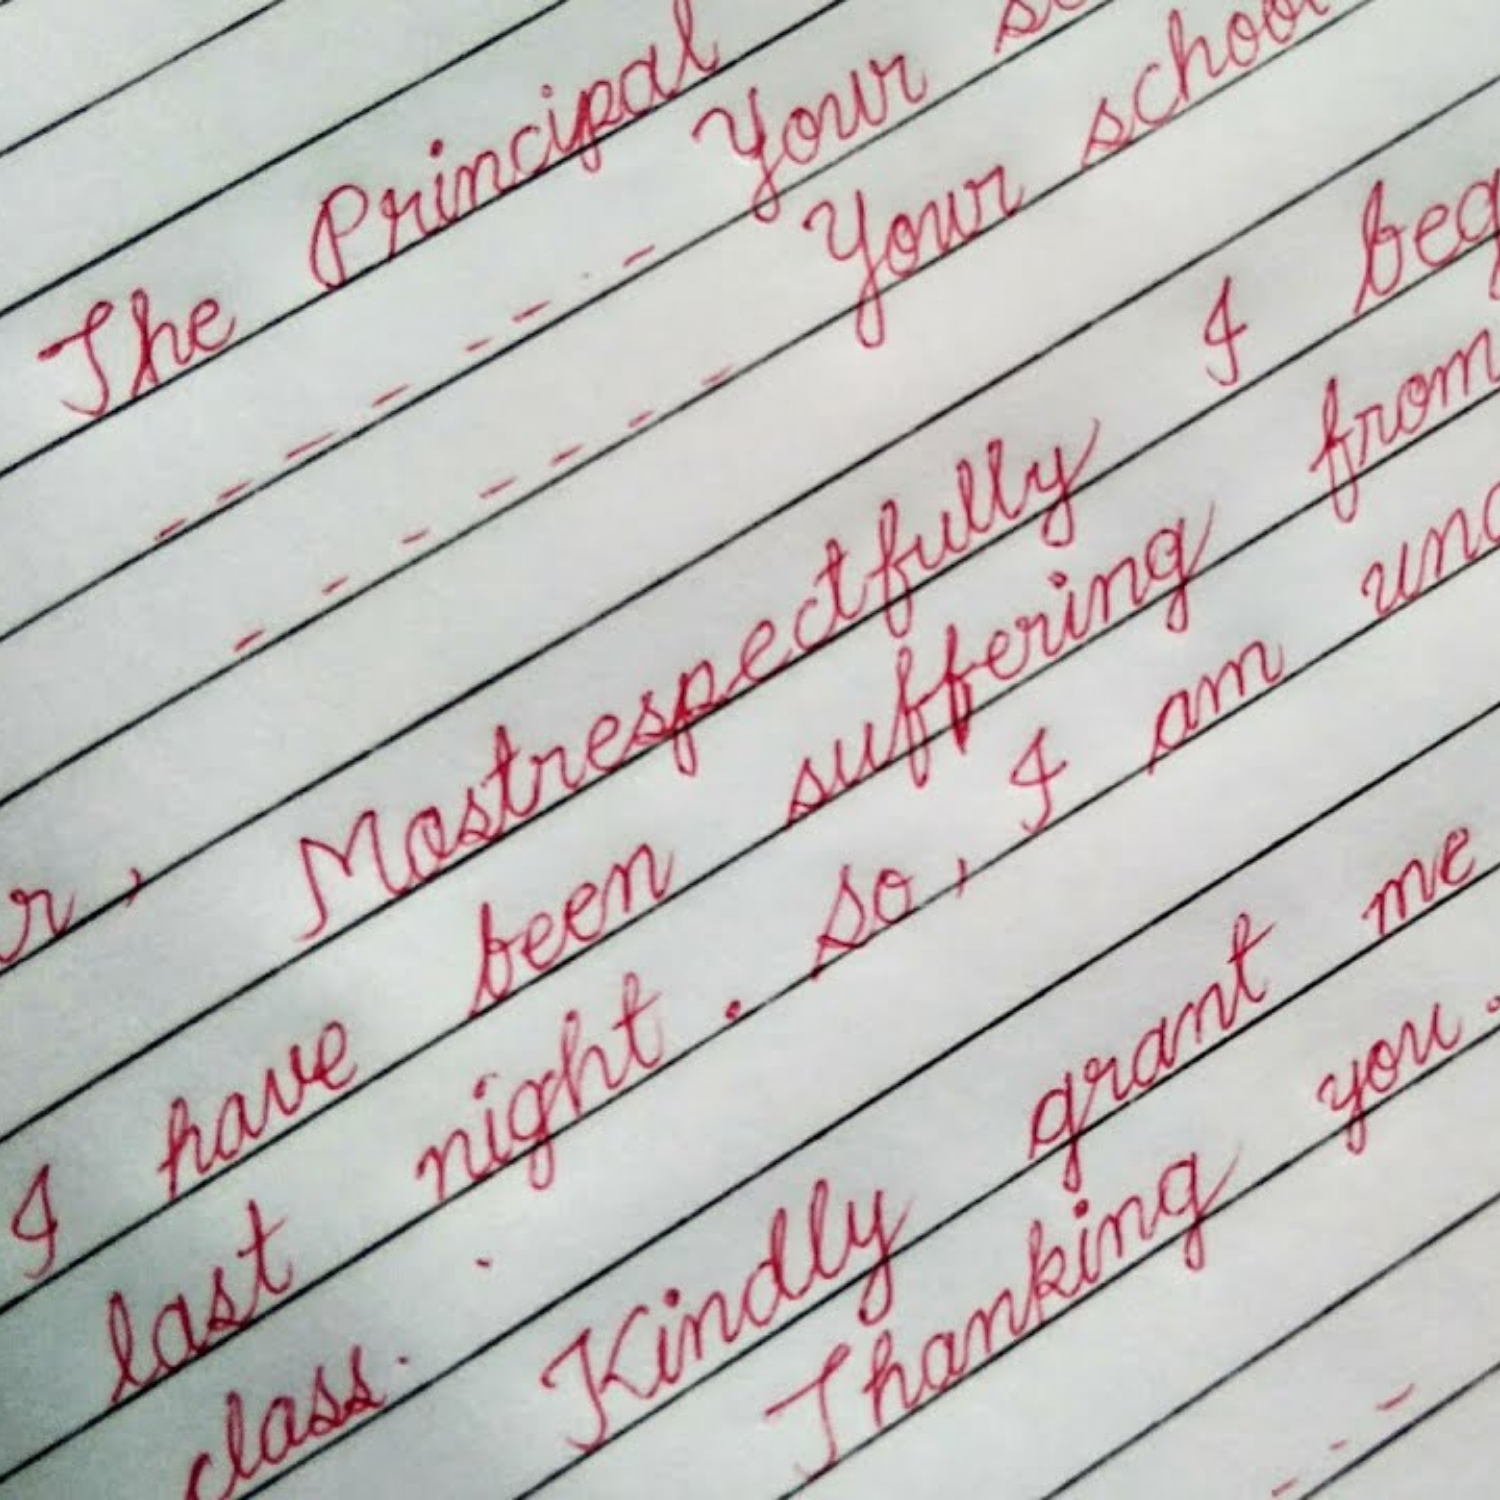 The Principal
- - - - - - - Your sc
- - - - - - - Your school
r, Mostrespectfully I beg
I have been suffering from
last night. so, I am una
class. Kindly grant me
Thanking you.